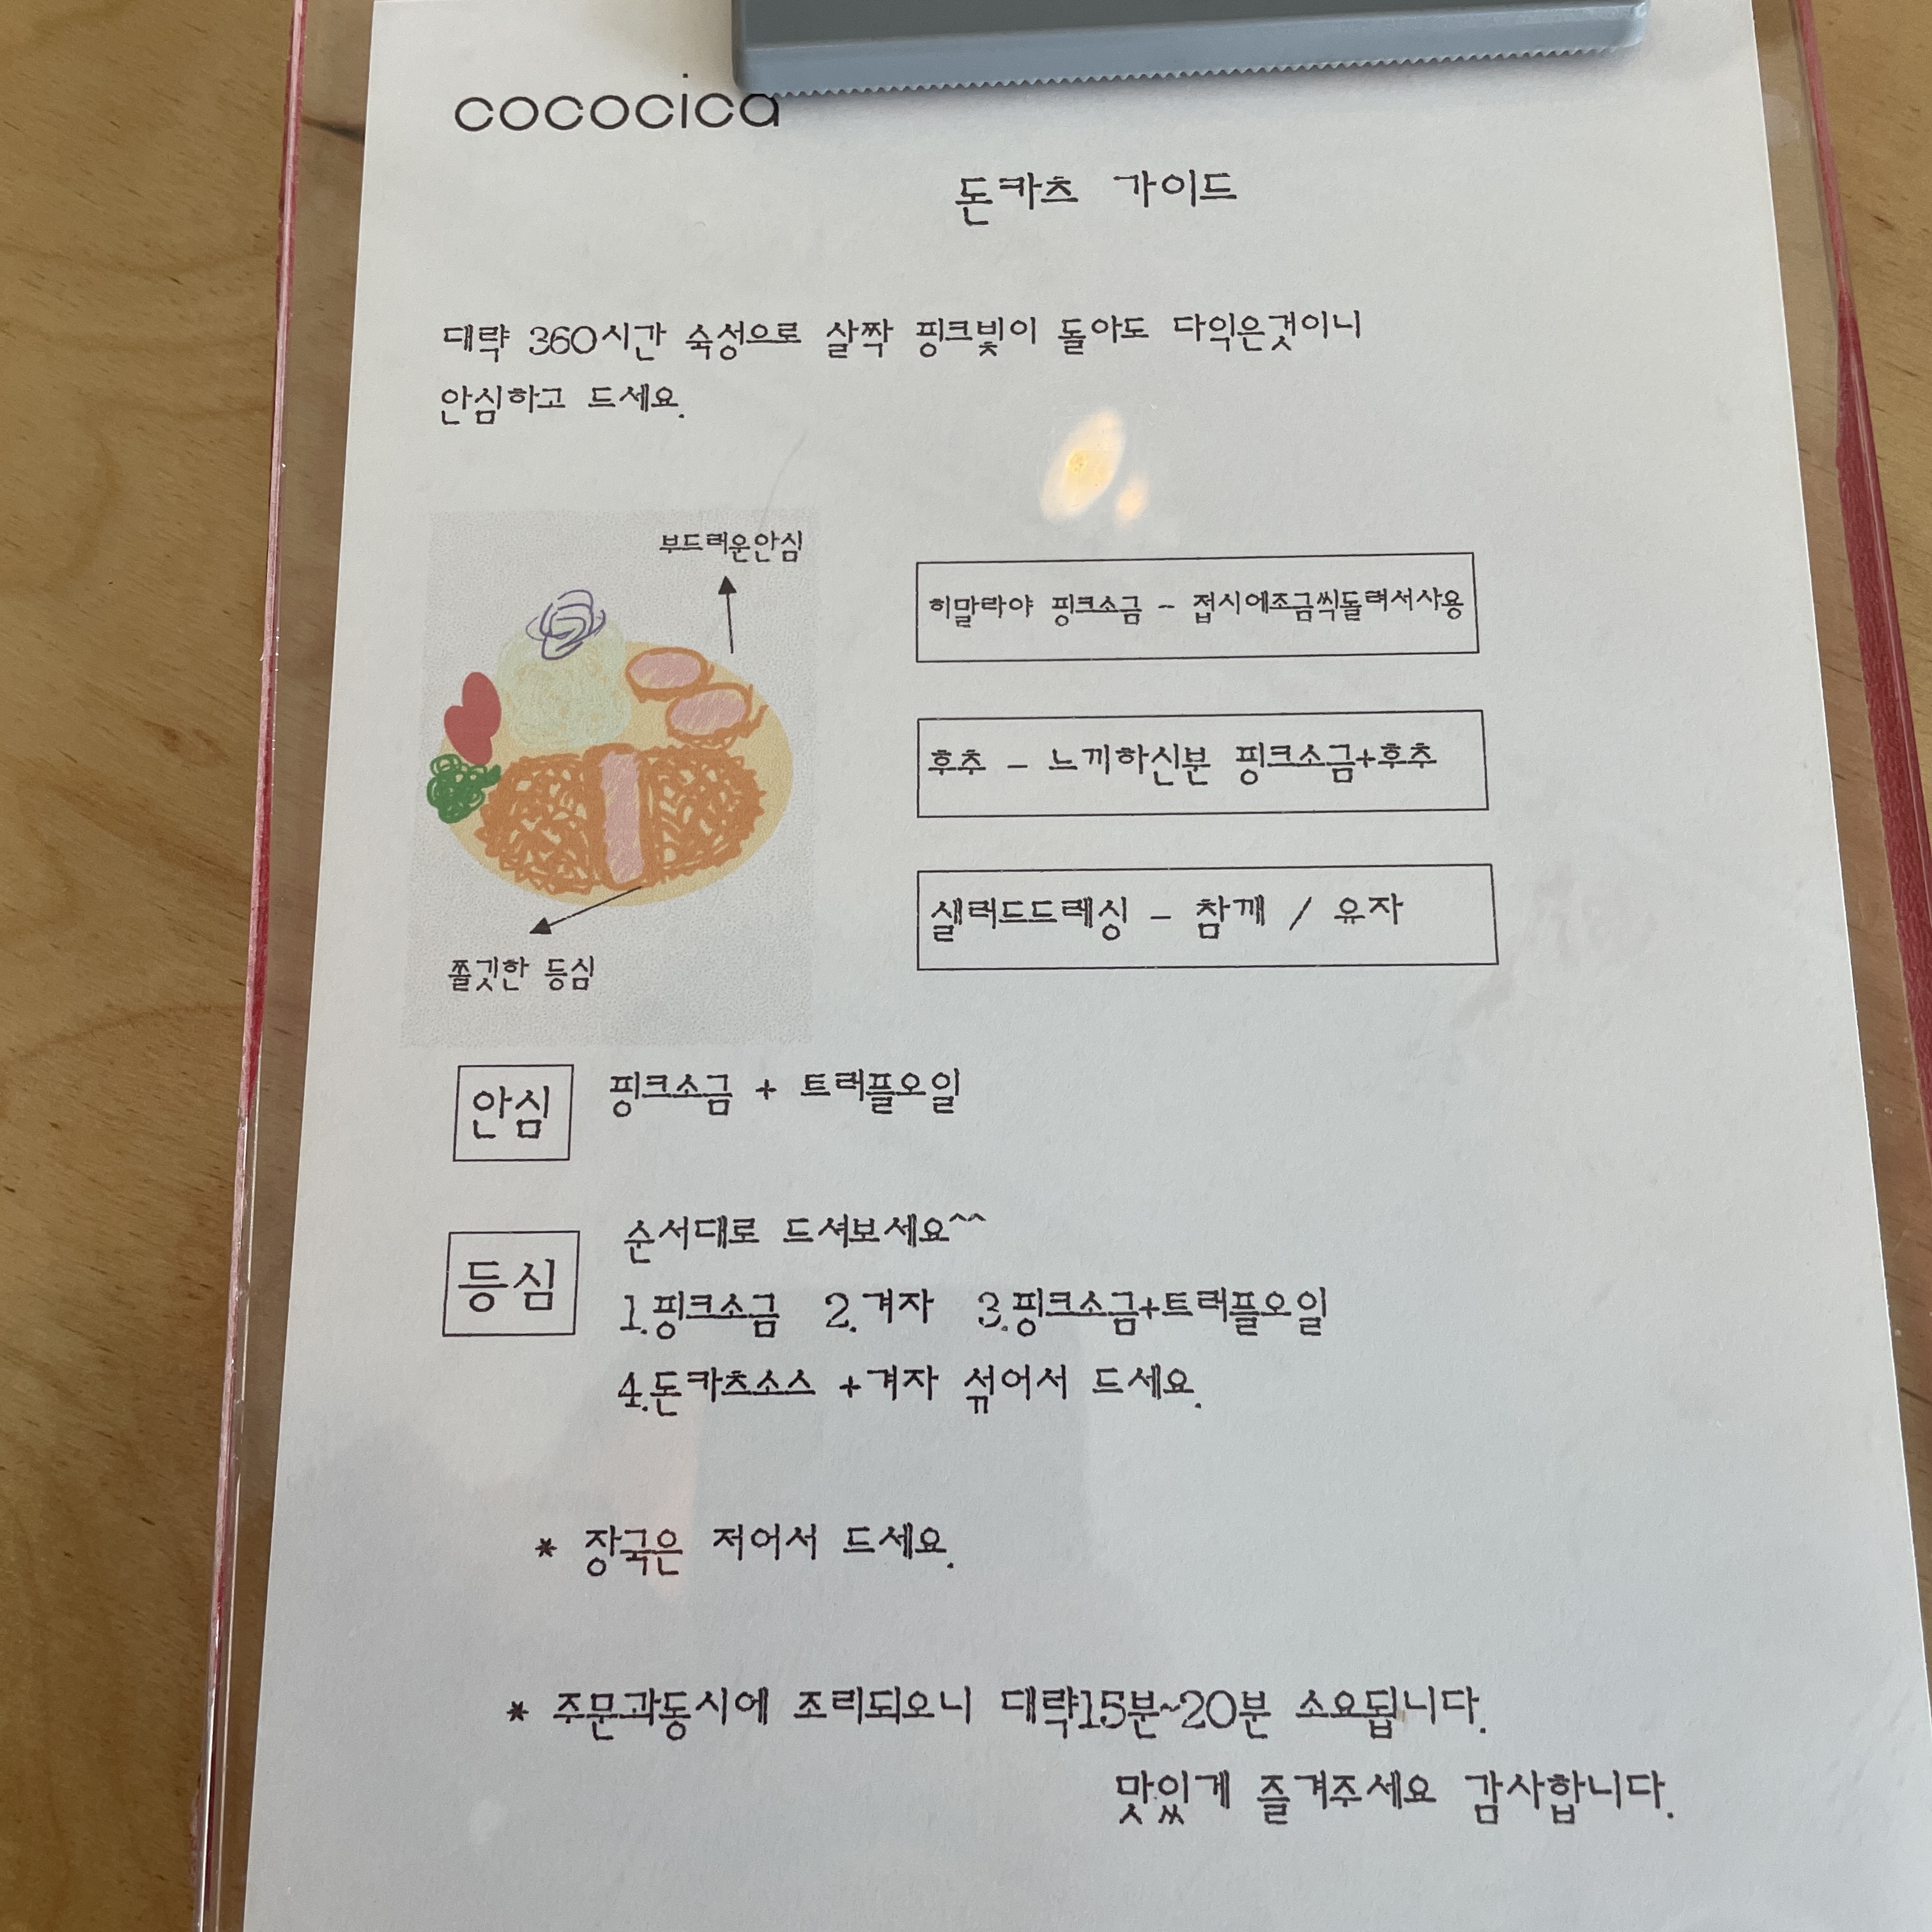 cococica
돈카츠 가이드
대략 360시간 숙성으로 살짝 핑크빛이 돌아도 다익은것이니
안심하고 드세요.
부드러운안심
쫄깃한 등심
히말라야 핑크소금 - 접시에조금씩돌려서사용
후추 - 느끼하신분 핑크소금+후추
샐러드드레싱 - 참깨 / 유자
안심
핑크소금 + 트러플오일
등심
순서대로 드셔보세요^^
1.핑크소금 2.겨자 3.핑크소금+트러플오일
4.돈카츠소스 +겨자 섞어서 드세요.
* 장국은 저어서 드세요.
* 주문과동시에 조리되오니 대략15분~20분 소요됩니다.
맛있게 즐겨주세요 감사합니다.